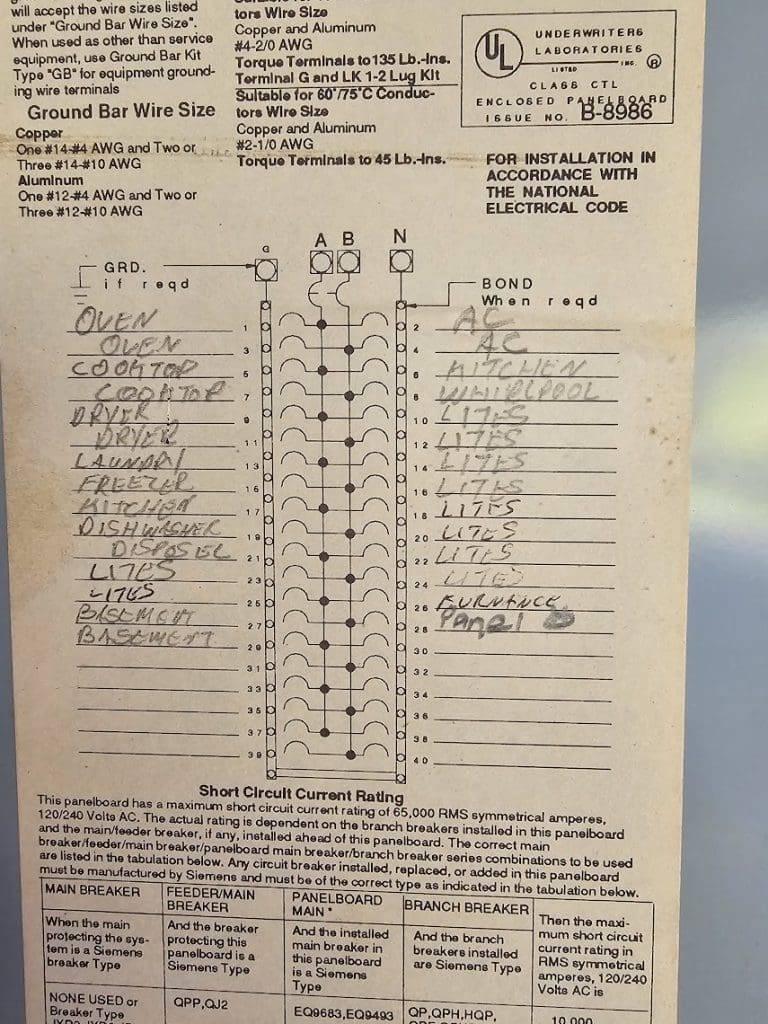 will accept the wire sizes listed
under "Ground Bar Wire Size".
When used as other than service
equipment, use Ground Bar Kit
Type "GB" for equipment ground-
ing wire terminals
Ground Bar Wire Size
Copper
One #14-#4 AWG and Two or
Three #14-#10 AWG
Aluminum
One #12-#4 AWG and Two or
Three #12-#10 AWG
tors Wire Size
Copper and Aluminum
#4-2/0 AWG
Torque Terminals to 135 Lb.-Ins.
Terminal G and LK 1-2 Lug Kit
Suitable for 60°/75°C Conduc-
tors Wire Size
Copper and Aluminum
#2-1/0 AWG
Torque Terminals to 45 Lb.-Ins.
UL
UNDERWRITERS
LABORATORIES
LISTED INC. ®
CLASS CTL
ENCLOSED PANELBOARD
ISSUE NO. B-8986
FOR INSTALLATION IN
ACCORDANCE WITH
THE NATIONAL
ELECTRICAL CODE
G A B N
GRD.
if reqd
BOND
When reqd
OVEN 1 2 AC
OVEN 3 4 AC
COOKTOP 5 6 KITCHEN
COOKTOP 7 8 WHIRLPOOL
DRYER 9 10 LITES
DRYER 11 12 LITES
LAUNDRY 13 14 LITES
FREEZER 15 16 LITES
KITCHEN 17 18 LITES
DISHWASHER 19 20 LITES
DISPOSEL 21 22 LITES
LITES 23 24 LITES
LITES 25 26 FURNANCE
BASEMENT 27 28 Panel
BASEMENT 29 30
31 32
33 34
35 36
37 38
39 40
Short Circuit Current Rating
This panelboard has a maximum short circuit current rating of 65,000 RMS symmetrical amperes,
120/240 Volts AC. The actual rating is dependent on the branch breakers installed in this panelboard
and the main/feeder breaker, if any, installed ahead of this panelboard. The correct main
breaker/feeder/main breaker/panelboard main breaker/branch breaker series combinations to be used
are listed in the tabulation below. Any circuit breaker installed, replaced, or added in this panelboard
must be manufactured by Siemens and must be of the correct type as indicated in the tabulation below.
MAIN BREAKER
When the main
protecting the sys-
tem is a Siemens
breaker Type
NONE USED or
Breaker Type
FEEDER/MAIN
BREAKER
And the breaker
protecting this
panelboard is a
Siemens Type
QPP,QJ2
PANELBOARD
MAIN *
And the installed
main breaker in
this panelboard
is a Siemens
Type
EQ9683,EQ9493
BRANCH BREAKER
And the branch
breakers installed
are Siemens Type
QP,QPH,HQP,
Then the maxi-
mum short circuit
current rating in
RMS symmetrical
amperes, 120/240
Volts AC is
10,000